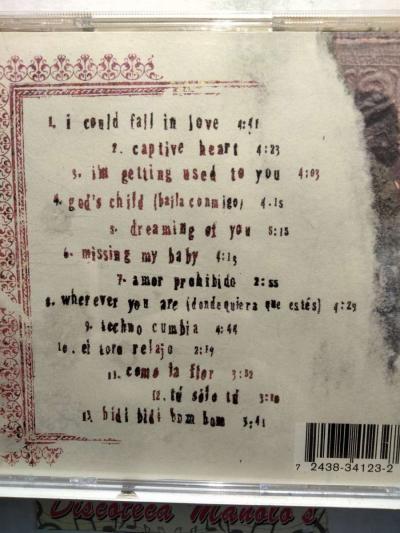 1. i could fall in love 4:41
2. captive heart 4:23
3. i'm getting used to you 4:03
4. god's child (baila conmigo) 4.15
5. dreaming of you 5:15
6. missing my baby 4:13
7. amor prohibido 2:55
8. wherever you are (dondequiera que estés) 4:29
9. techno cumbia 4:44
10. el toro relajo 2:19
11. como la flor 3:02
12. tú sólo tú 3:10
13. bidi bidi bom bom 3:41
7 2438-34123-2
Discoteca Manolo's